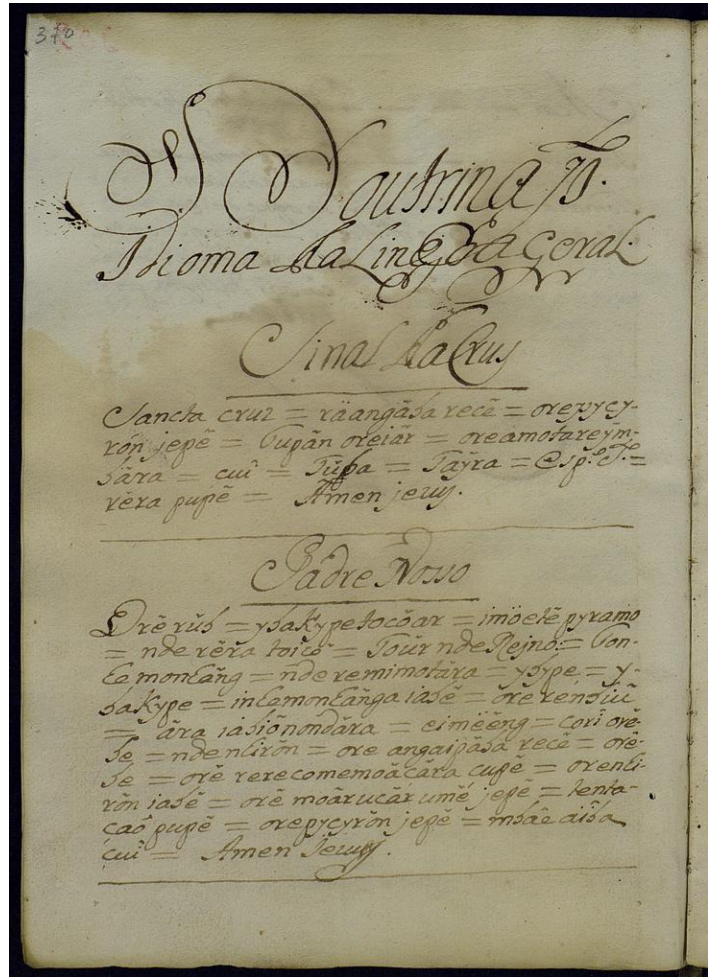 370
Doutrina Jᵒ.
Idioma da Lingoa Geral.
Sinal da Crus
Sancta cruz = räangäba recẽ = orepycy-
rón jepẽ = Tupãn oreiãr = oreamotareým-
bära = cuî = Tüba = Taÿra = Esp.ᵗ Sᵗᵒ =
rẽra pupẽ = Amen jesus.
Padre Nosso
Orẽ rŭb = ybakype tocõar = imöetẽ pyramo
= nde rẽra toicõ = Tour nde Rejno = Ton-
temontãng = ñde remimotãra = ybype = y-
bakype = intemontãnga iabẽ = õre renbiũ
= ãra iabiõnondãra = eimëëng = cori orẽ-
be = nde ntirõn = ore angaipãba recẽ = orẽ-
be = orẽ rerecomemoãcãra cupẽ = orenti-
rõn iabẽ = orẽ moãrucãr umẽ jepẽ = tenta-
caõ pupẽ = orepycyrõn jepẽ = mbãe aiba
cuî = Amen Jesus.